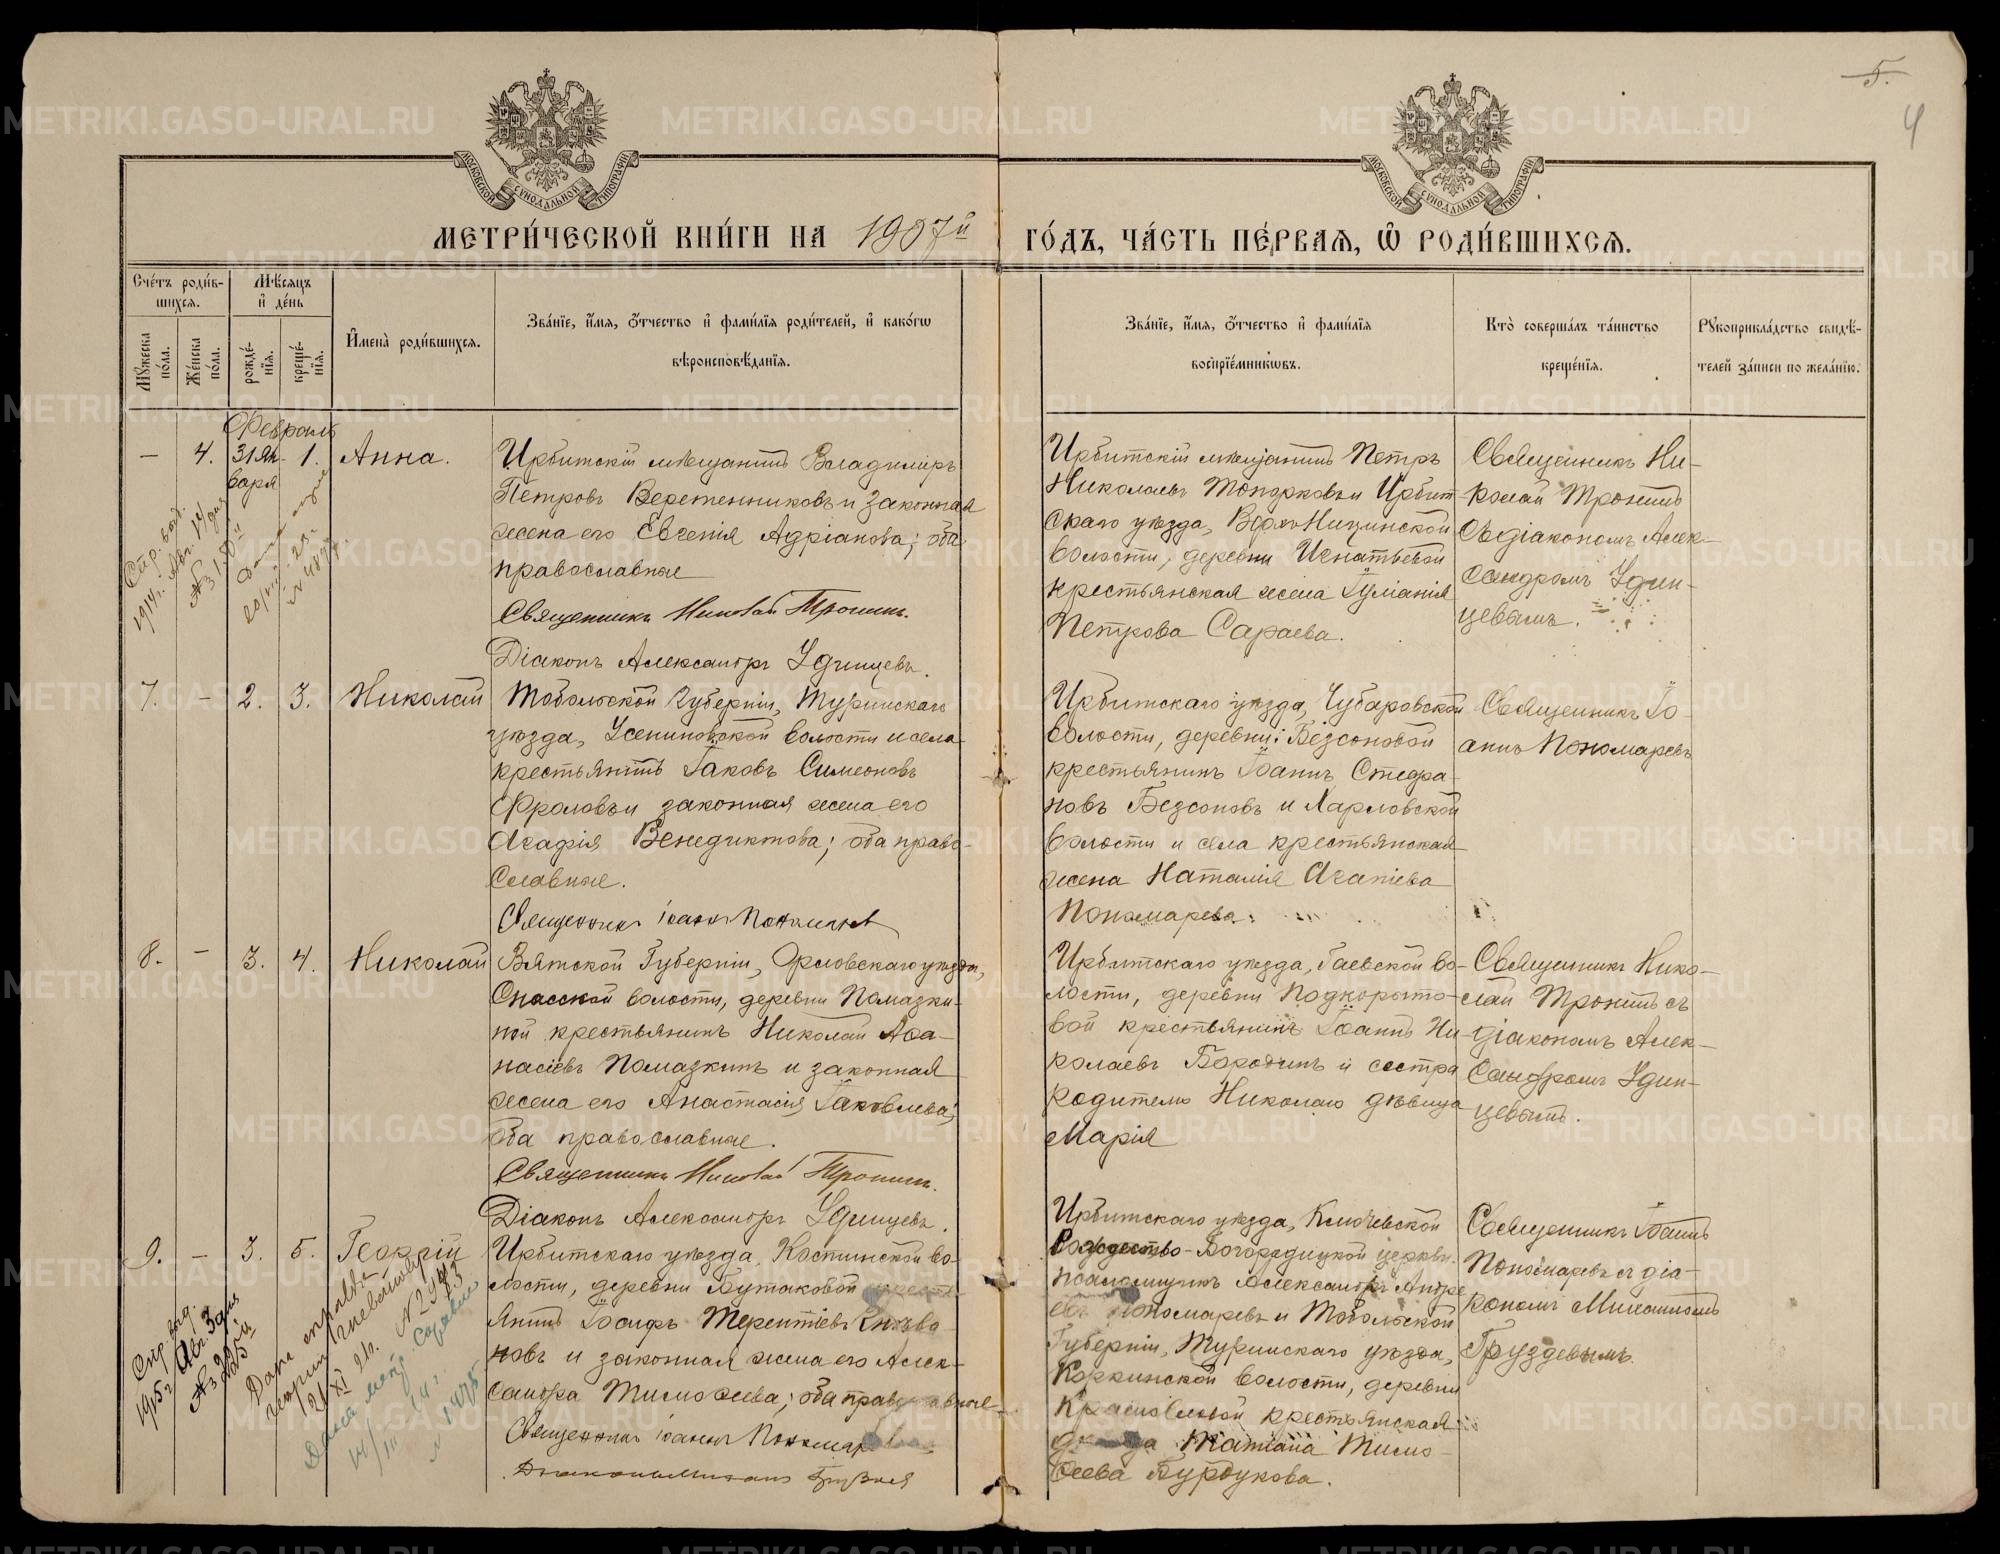 5.
4
МОСКОВСКОЙ СУНОДАЛЬНОЙ ТИПОГРАФІИ
МОСКОВСКОЙ СУНОДАЛЬНОЙ ТИПОГРАФІИ
МЕТРИ́ЧЕСКОЙ КНИ́ГИ НА 1907й ГО́ДЪ, ЧА́СТЬ ПЕ́РВАѦ, Ѡ҆ РОДИ́ВШИХСѦ.
Сче́тъ роди́в-
шихсѧ.
Мѣ́сѧцъ
и҆ де́нь
Мꙋ́жеска
по́ла.
Же́нска
по́ла.
рожде́-
нїѧ.
креще́-
нїѧ.
И҆мена̀ роди́вшихсѧ.
Зва́нїе, и҆́мѧ, ѻ҆́тчество и҆ фами́лїѧ роди́телей, и҆ како́гѡ
вѣроисповѣ́данїѧ.
Зва́нїе, и҆́мѧ, ѻ҆́тчество и҆ фами́лїѧ
воспрїе́мникѡвъ.
Кто̀ соверша́лъ та́инство
креще́нїѧ.
Рꙋкоприкла́дство свидѣ́-
телей за́писи по жела́нїю.
Февраль
— 4. 31 Ян-
варя 1. Анна.
Ирбитскій мѣщанинъ Владиміръ
Петровъ Веретенниковъ и законная
жена его Евгенія Адріанова; оба
православные
Священникъ Николай Тронинъ.
Діаконъ Александръ Удинцевъ.
Ирбитскій мѣщанинъ Петръ
Николаевъ Топорковъ и Ирбит-
скаго уѣзда, Верхъ-Ницинской
волости, деревни Игнатьевой
крестьянская жена Іуліанія
Петрова Сараева.
Священникъ Ни-
колай Тронинъ
съ діакономъ Алек-
сандромъ Удин-
цевымъ.
7. — 2. 3. Николай
Тобольской губерніи, Туринскаго
уѣзда, Усениновской волости и села
крестьянинъ Іаковъ Симеоновъ
Фроловъ и законная жена его
Агафія Венедиктова; оба право-
славные.
Священникъ Іоаннъ Пономаревъ
Ирбитскаго уѣзда, Чубаровской
волости, деревни Безсоновой
крестьянинъ Іоаннъ Стефа-
новъ Безсоновъ и Харловской
волости и села крестьянская
жена Наталія Агапіева
Пономарева.
Священникъ Іо-
аннъ Пономаревъ
8. — 3. 4. Николай
Вятской Губерніи, Орловскаго уѣзда,
Спасской волости, деревни Помазки-
ной крестьянинъ Николай Аѳа-
насіевъ Помазкинъ и законная
жена его Анастасія Іаковлева;
оба православные.
Священникъ Николай Тронинъ.
Діаконъ Александръ Удинцевъ.
Ирбитскаго уѣзда, Гаевской во-
лости, деревни Подкорыто-
вой крестьянинъ Іоаннъ Ни-
колаевъ Бородинъ и сестра
родителю Николаю дѣвица
Марія
Священникъ Нико-
лай Тронинъ съ
діакономъ Алек-
сандромъ Удин-
цевымъ.
9. — 3. 5. Георгій
Ирбитскаго уѣзда, Костинской во-
лости, деревни Бутаковой
янинъ Іосифъ Терентіевъ
новъ и законная жена его Алек-
сандра Тимоѳеева; оба православные
Священникъ Іоаннъ Пономарев
Ирбитскаго уѣзда, Ключевской
Рождество-Богородицкой церкви
псаломщикъ Александръ Андре-
евъ Пономаревъ и Тобольской
Губерніи, Туринскаго уѣзда,
Коркинской волости, деревни
крестьянская
Татіана Тимо-
ѳеева Бурдукова.
Священникъ Іоаннъ
Пономаревъ съ діа-
кономъ
Груздевымъ.